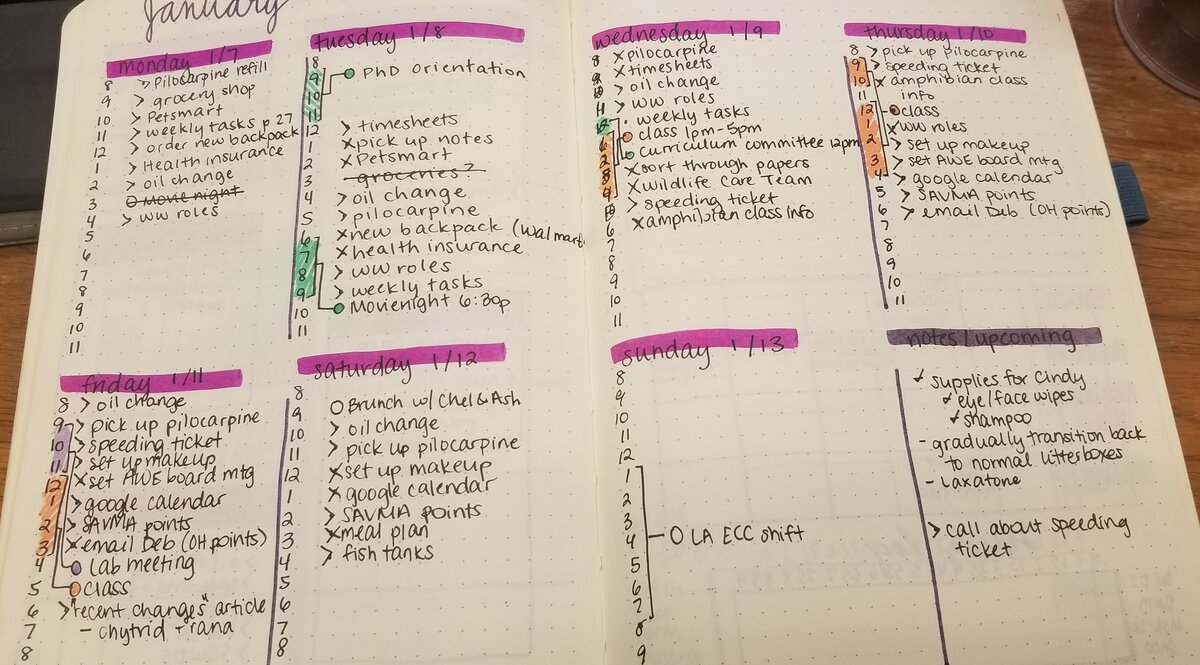 January
monday 1/7
8
9
10
11
12
1
2
3
4
5
6
7
8
9
10
11
> Pilocarpine refill
> grocery shop
> Petsmart
> weekly tasks p 27
> order new backpack
> Health insurance
> oil change
O Movie night
> WW roles
tuesday 1/8
8
9
10
11
12
1
2
3
4
5
6
7
8
9
10
11
PhD Orientation
> timesheets
x pick up notes
x Petsmart
groceries?
> oil change
> pilocarpine
x new backpack (Walmart)
x health insurance
> WW roles
> weekly tasks
Movienight 6:30p
wednesday 1/9
8
9
10
11
12
1
2
3
4
5
6
7
8
9
10
11
x pilocarpine
x timesheets
> oil change
> WW roles
• weekly tasks
class 1pm-5pm
curriculum committee 12pm
x sort through papers
x Wildlife Care Team
> speeding ticket
x amphibian class info
thursday 1/10
8
9
10
11
12
1
2
3
4
5
6
7
8
9
10
11
> pick up pilocarpine
> speeding ticket
x amphibian class
info
class
x WW roles
> set up makeup
> set AWE board mtg
> google calendar
> SAVMA points
> email Deb (OH points)
friday 1/11
8
9
10
11
12
1
2
3
4
5
6
7
8
> oil change
> pick up pilocarpine
> speeding ticket
> set up makeup
x set AWE board mtg
> google calendar
> SAVMA points
x email Deb (OH points)
Lab meeting
class
> "recent changes" article
- chytrid + rana
saturday 1/12
8
9
10
11
12
1
2
3
4
5
6
7
8
O Brunch w/ Chel & Ash
> oil change
> pick up pilocarpine
x set up makeup
x google calendar
> SAVMA points
x meal plan
> fish tanks
sunday 1/13
8
9
10
11
12
1
2
3
4
5
6
7
8
9
O LA ECC shift
notes/upcoming
supplies for Cindy
eye/face wipes
shampoo
- gradually transition back
to normal litterboxes
- laxatone
> call about speeding
ticket